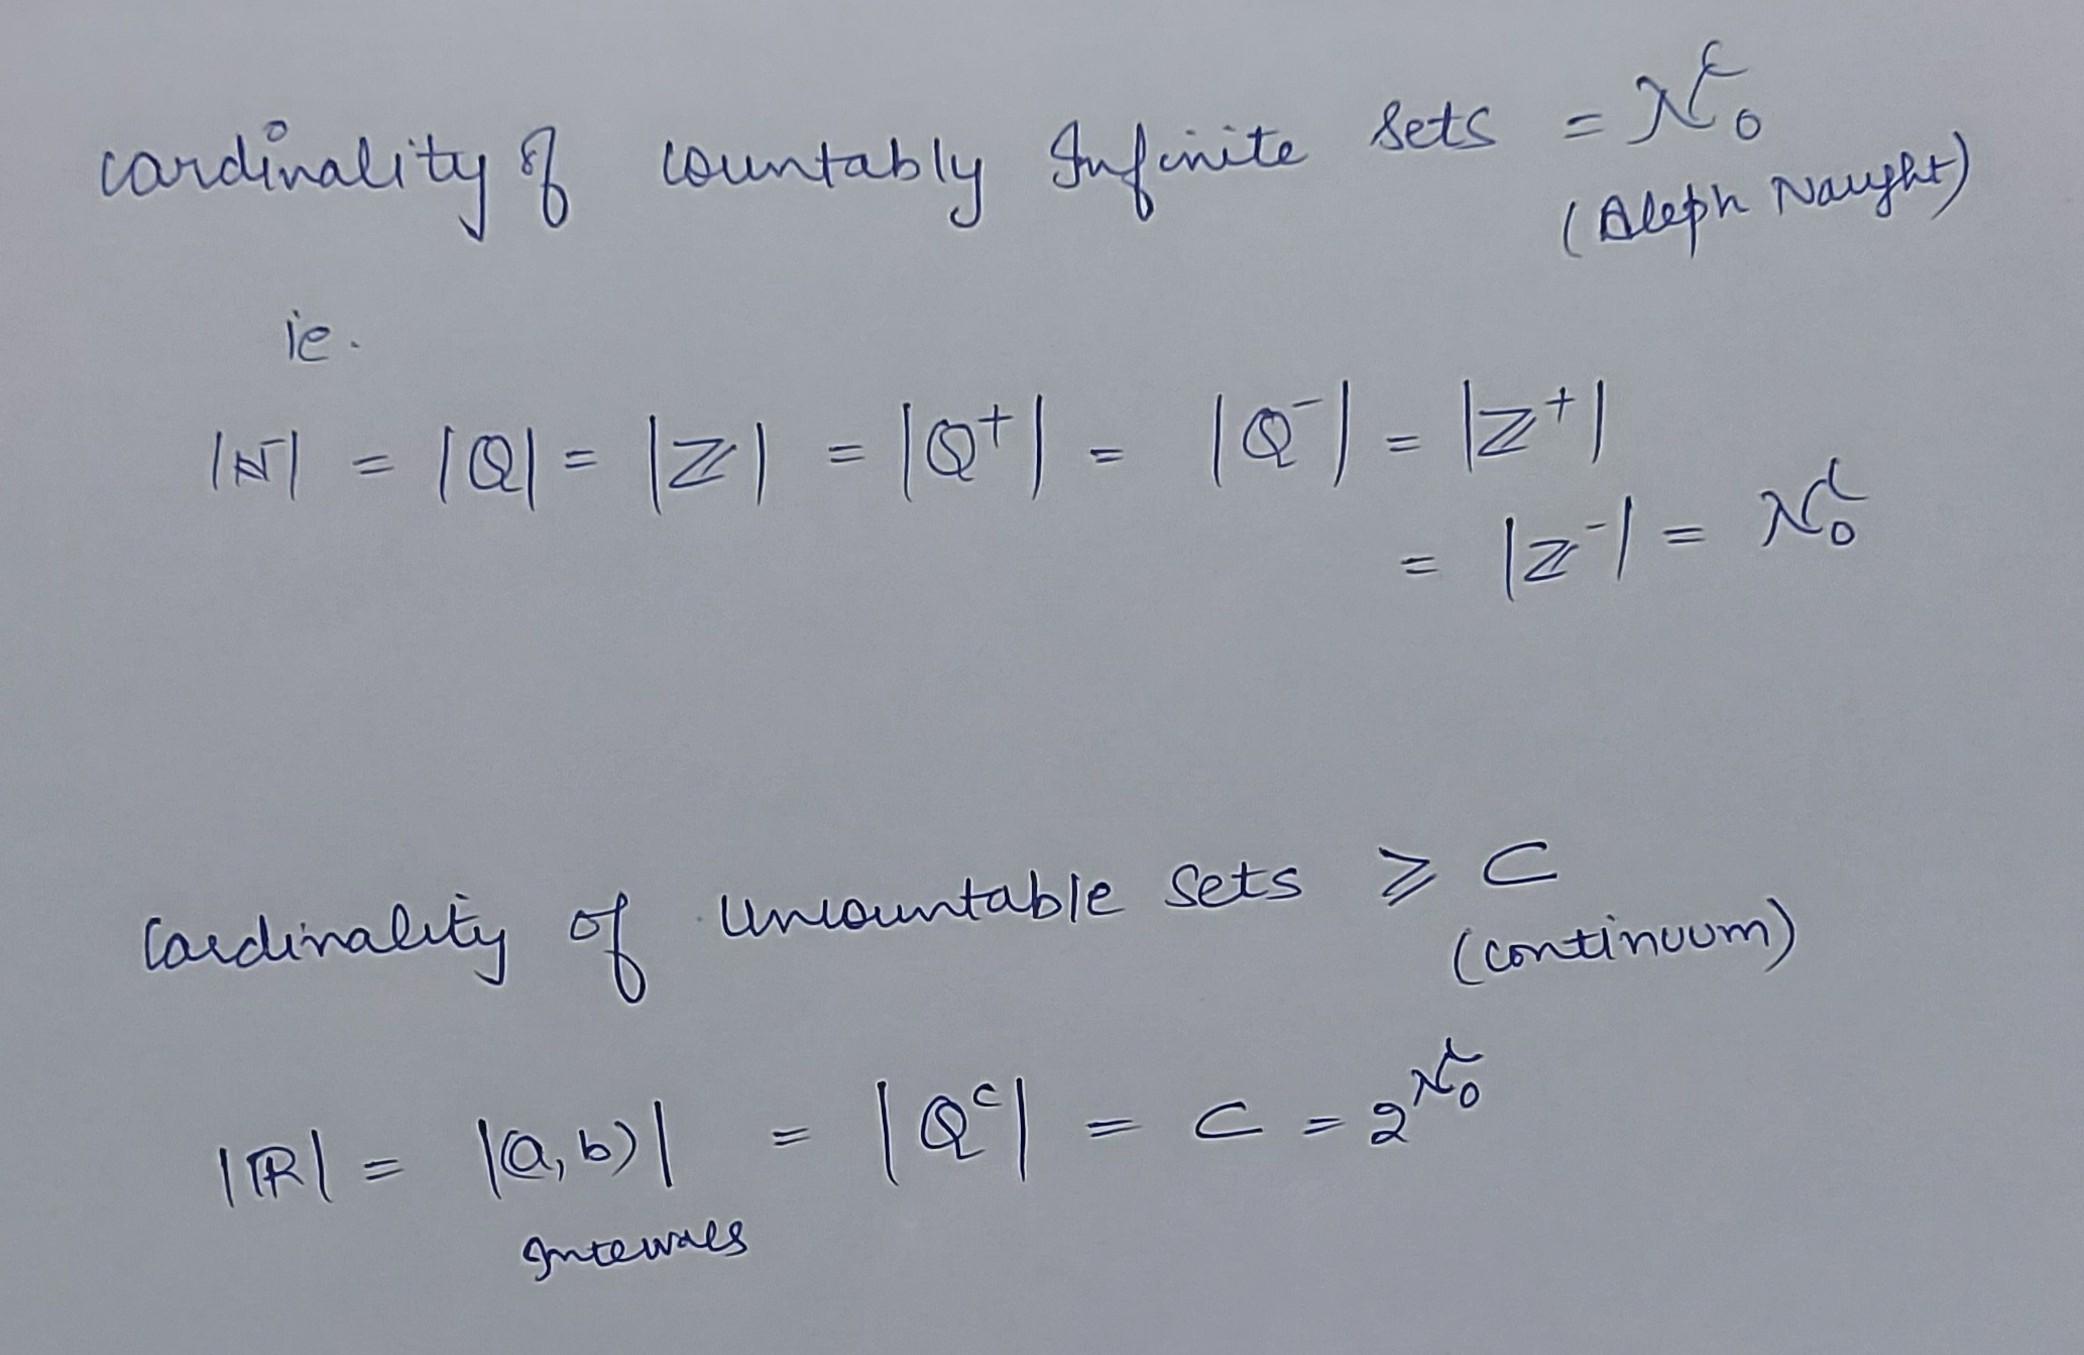 cardinality of countably Infinite Sets = ℵ₀
(Aleph Naught)
ie.
|ℕ| = |ℚ| = |ℤ| = |ℚ⁺| = |ℚ⁻| = |ℤ⁺|
= |ℤ⁻| = ℵ₀
Cardinality of Uncountable Sets ⩾ C
(continuum)
|ℝ| = |(a,b)| = |ℚᶜ| = C = 2^ℵ₀
Intervals